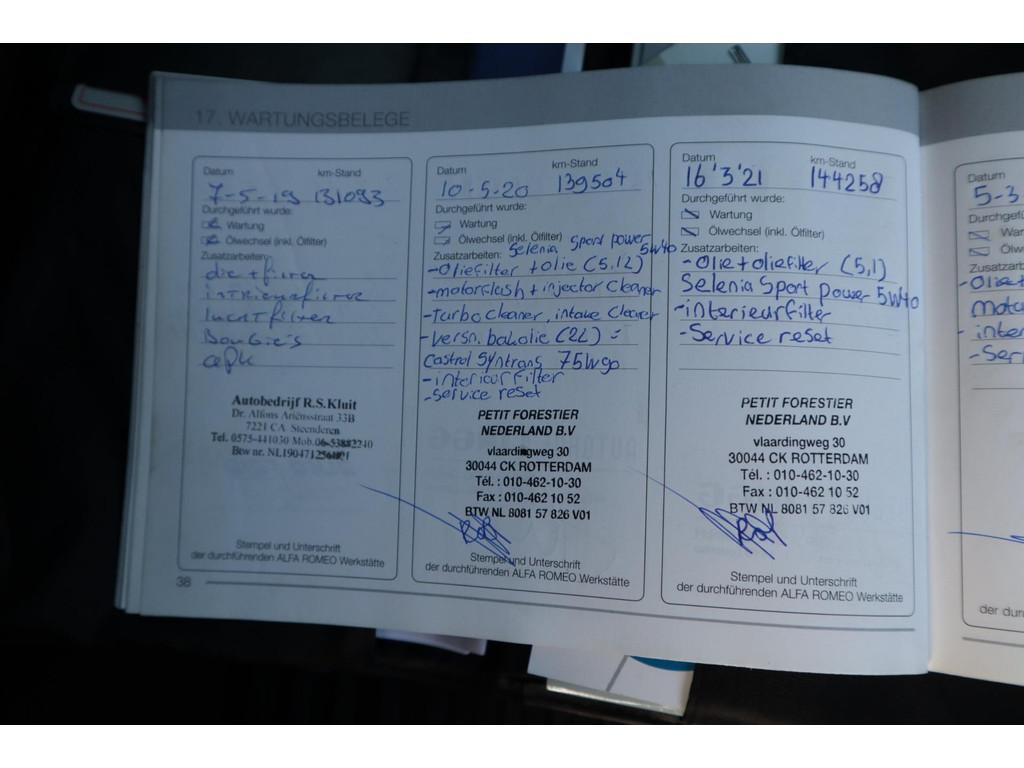 17. WARTUNGSBELEGE
Datum km-Stand
7-5-19 131093
Durchgeführt wurde:
Wartung
Ölwechsel (inkl. Ölfilter)
Zusatzarbeiten:
Bougie's
apk
Autobedrijf R.S.Kluit
Dr. Alfons Ariënsstraat 33B
7221 CA Steenderen
Tel. 0575-441030 Mob.06-53882240
Btw nr.
Stempel und Unterschrift
der durchführenden ALFA ROMEO Werkstätte
38
Datum km-Stand
10-5-20 139504
Durchgeführt wurde:
Wartung
Ölwechsel (inkl. Ölfilter)
Selenia Sport power 5W40
Zusatzarbeiten:
-Oliefilter + olie (5,1L)
-motorflush + injector Cleaner
-Turbo Cleaner, intake Cleaner
-versn. bakolie (2L) =
Castrol Syntrans 75W90
-interieur Filter
-service reset
PETIT FORESTIER
NEDERLAND B.V
vlaardingweg 30
30044 CK ROTTERDAM
Tél. : 010-462-10-30
Fax : 010-462 10 52
BTW NL 8081 57 826 V01
Stempel und Unterschrift
der durchführenden ALFA ROMEO Werkstätte
Datum km-Stand
16'3'21 144258
Durchgeführt wurde:
Wartung
Ölwechsel (inkl. Ölfilter)
Zusatzarbeiten:
-Olie + oliefilter (5,1)
Selenia Sport power 5W40
-interieurfilter
-Service reset
PETIT FORESTIER
NEDERLAND B.V
vlaardingweg 30
30044 CK ROTTERDAM
Tél. : 010-462-10-30
Fax : 010-462 10 52
BTW NL 8081 57 826 V01
Stempel und Unterschrift
der durchführenden ALFA ROMEO Werkstätte
Datum
5-3